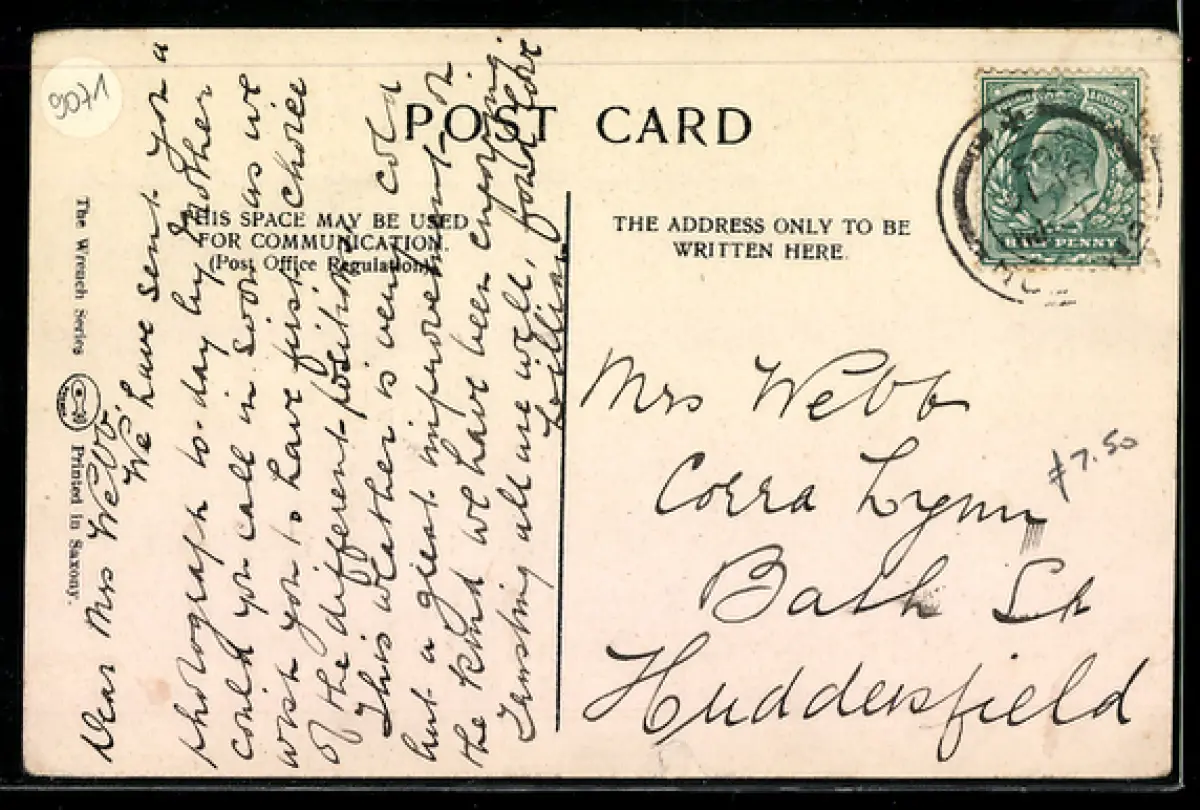 9071
POST CARD
THIS SPACE MAY BE USED
FOR COMMUNICATION.
(Post Office Regulation).
THE ADDRESS ONLY TO BE
WRITTEN HERE.
HALF PENNY
The Wrench Series
Printed in Saxony.
Dear Mrs Webb,
We have sent you a
photograph to-day by Mother
could you call in soon as we
wish you to have first choice
of the different positions
This weather is very cold
but a great improvement on
the kind we have been enjoying.
Trusting all are well, fond love
Lillian
Mrs Webb
Corra Lynn
Bath St
Huddersfield
£7.50